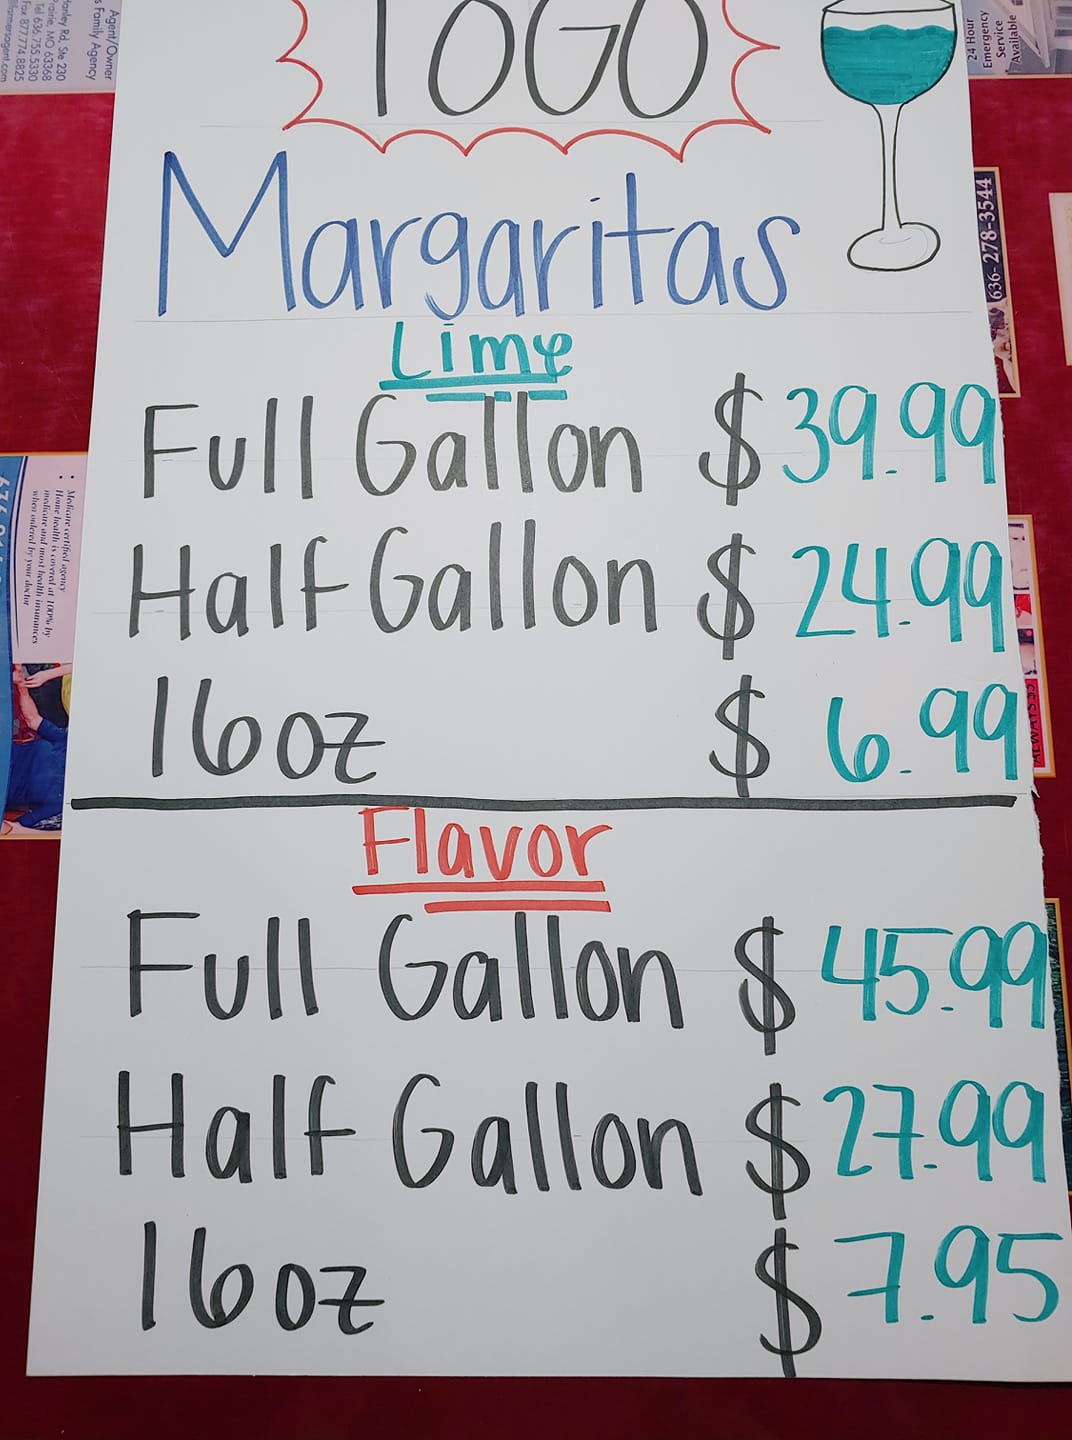 TOGO
Margaritas
Lime
Full Gallon $39.99
Half Gallon $24.99
16oz $6.99
Flavor
Full Gallon $45.99
Half Gallon $27.99
16oz $7.95
Agent/Owner
s Family Agency
anley Rd, Ste 230
rairie, MO 63368
Tel 636.755.5330
Fax 877.774.8825
farmersagent.com
24 Hour
Emergency
Service
Available
636-278-3544
• Medicare certified agency
• Home health is covered at 100% by
medicare and most health insurances
when ordered by your doctor
ALWAYS $5